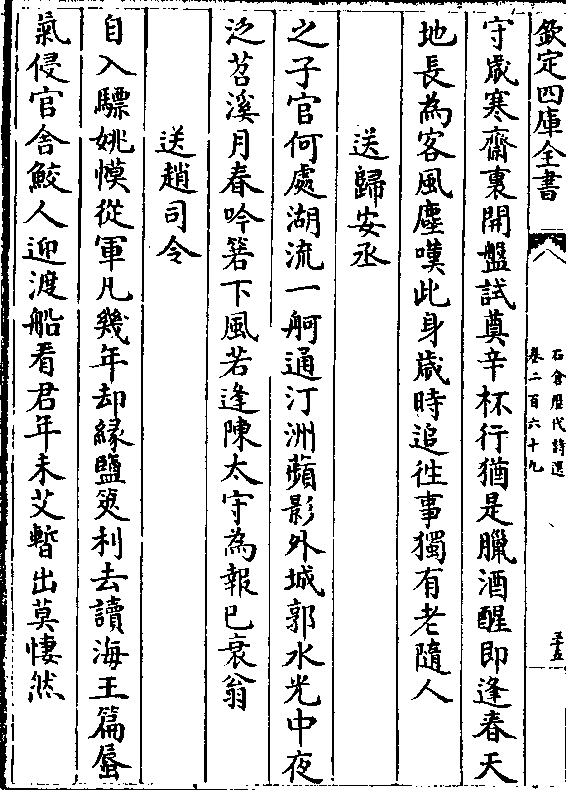 欽定四庫全書
石倉歷代詩選
卷二百六十九
五五
守歲寒齋裏開盤試奠辛杯行猶是臘酒醒即逢春天
地長為客風塵嘆此身歲時追徃事獨有老隨人
送歸安丞
之子官何處湖流一舸通汀洲蘋影外城郭水光中夜
泛苕溪月春吟箬下風若逢陳太守為報已衰翁
送趙司令
自入驃姚幙從軍凡幾年却緣鹽筴利去讀海王篇蜃
氣侵官舎鮫人迎渡船看君年未艾暫出莫悽然